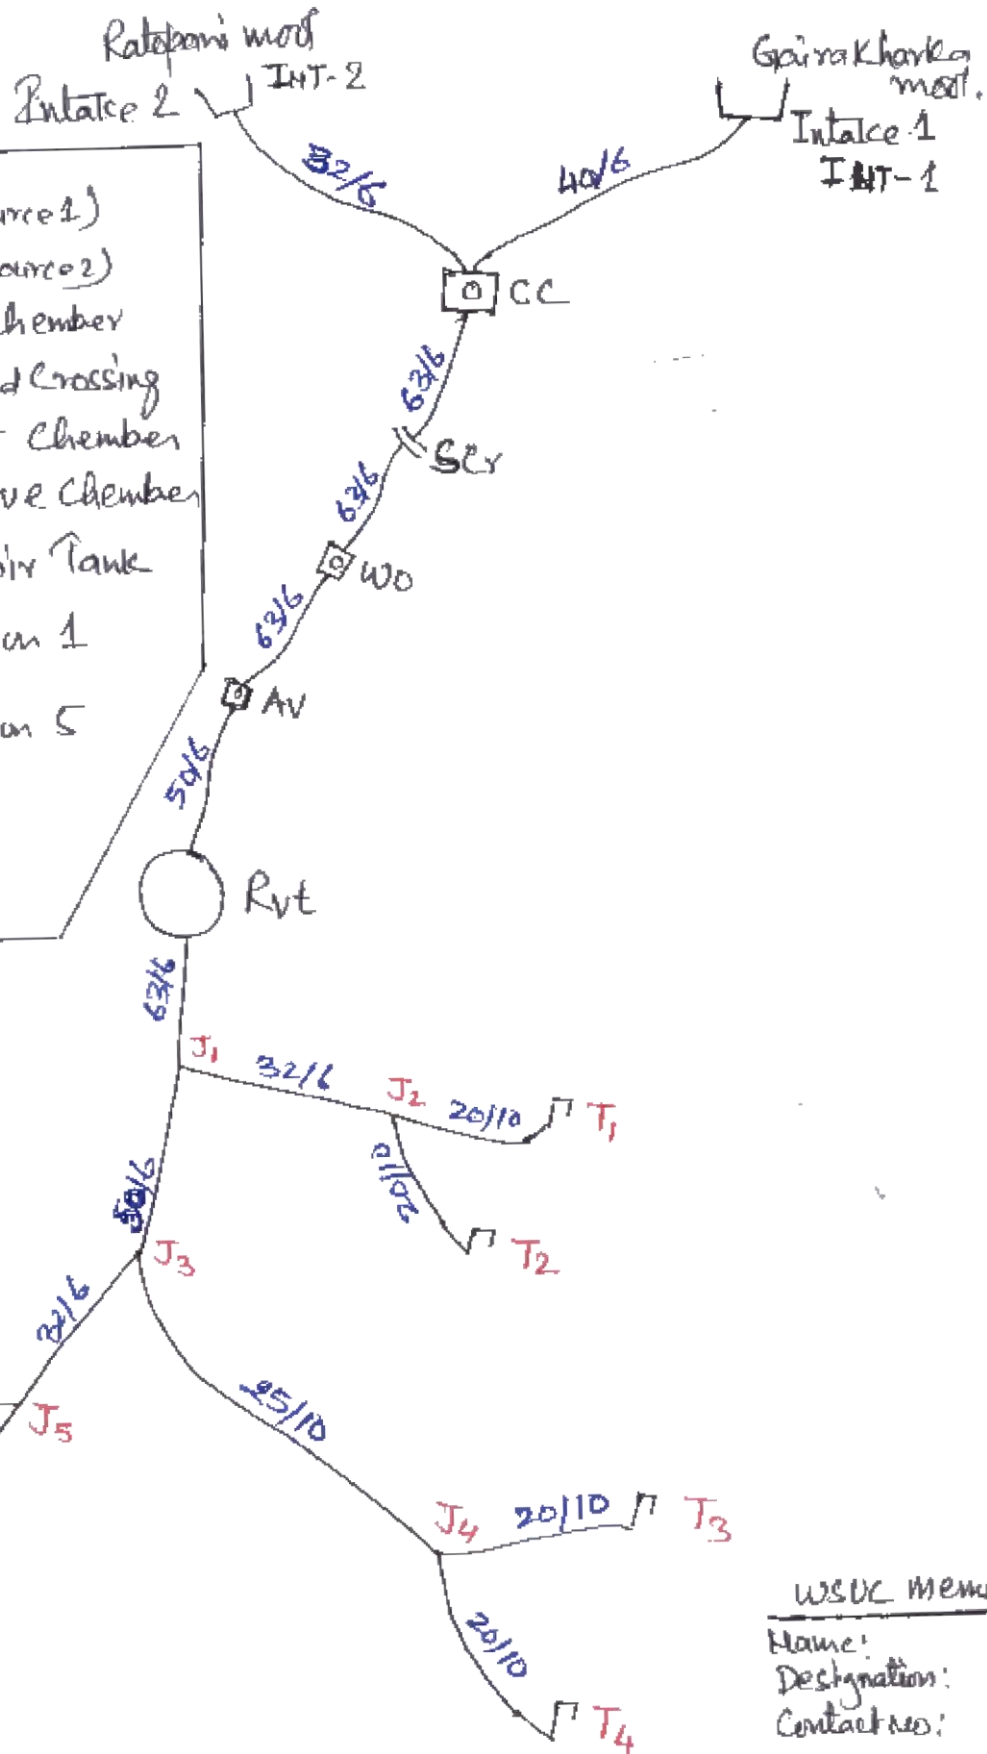 Ratopani mool
INT-2
Intake 2
Gairakharka
mool.
Intalce 1
INT-1
32/6
40/6
urce 1)
ource 2)
hember
d Crossing
r Chember
ve Chember
oir Tank
on 1
on 5
CC
63/6
SCr
63/6
WO
63/6
AV
50/6
Rvt
63/6
J1
32/6
J2
20/10
T1
20/10
T2
50/6
J3
32/6
J5
25/10
J4
20/10
T3
20/10
T4
WSUC mem
Name:
Designation:
Contact no: